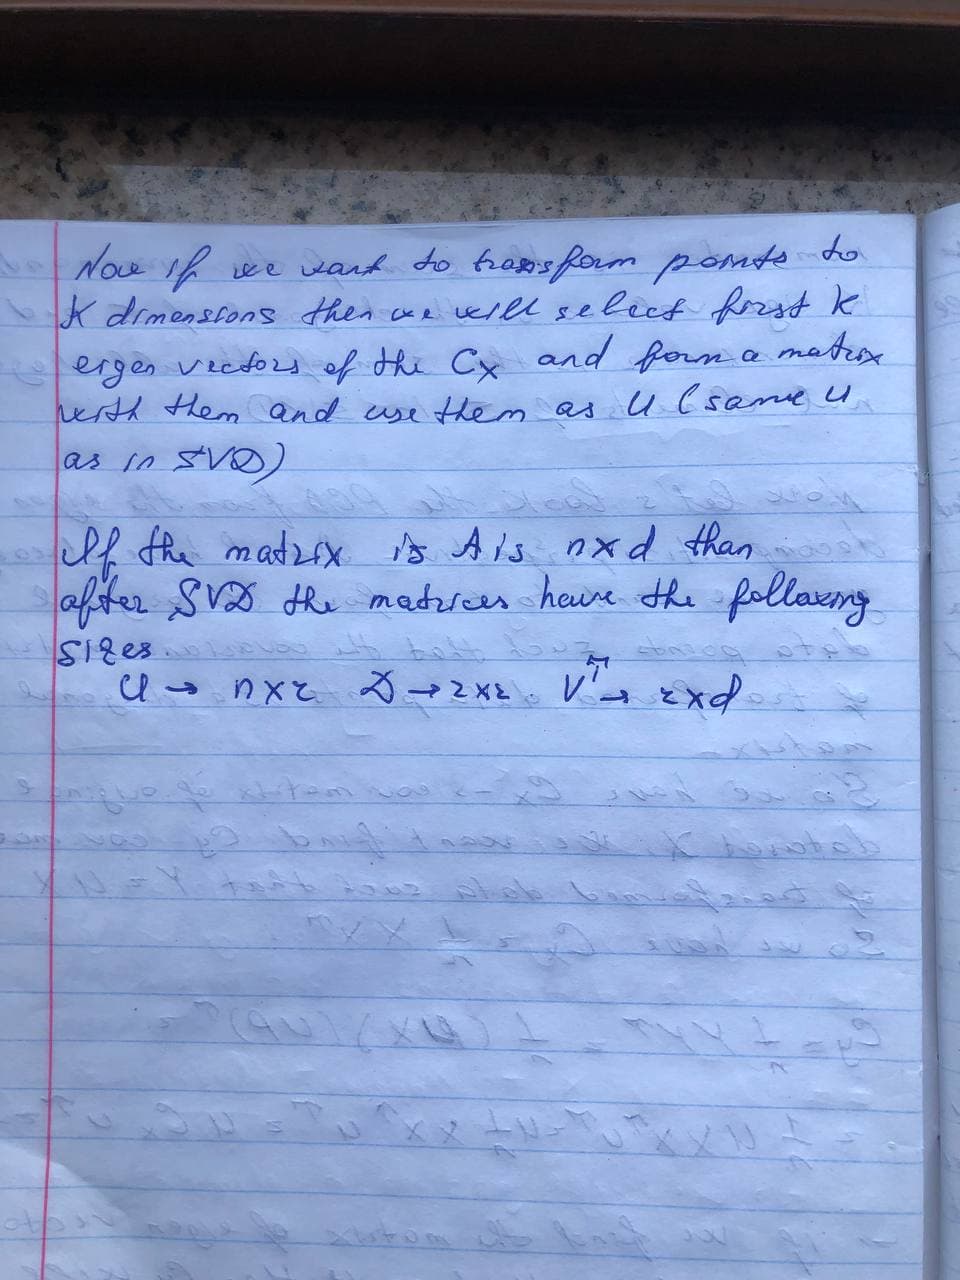 Now if we want to transform points to
K dimensions then we will select first k
eigen vectors of the Cx and form a matrix
with them and use them as U (same U
as in SVD)
If the matrix is A is n x d than
after SVD the matrices have the following
sizes.
U → n x r D → r x r. V^T → r x d